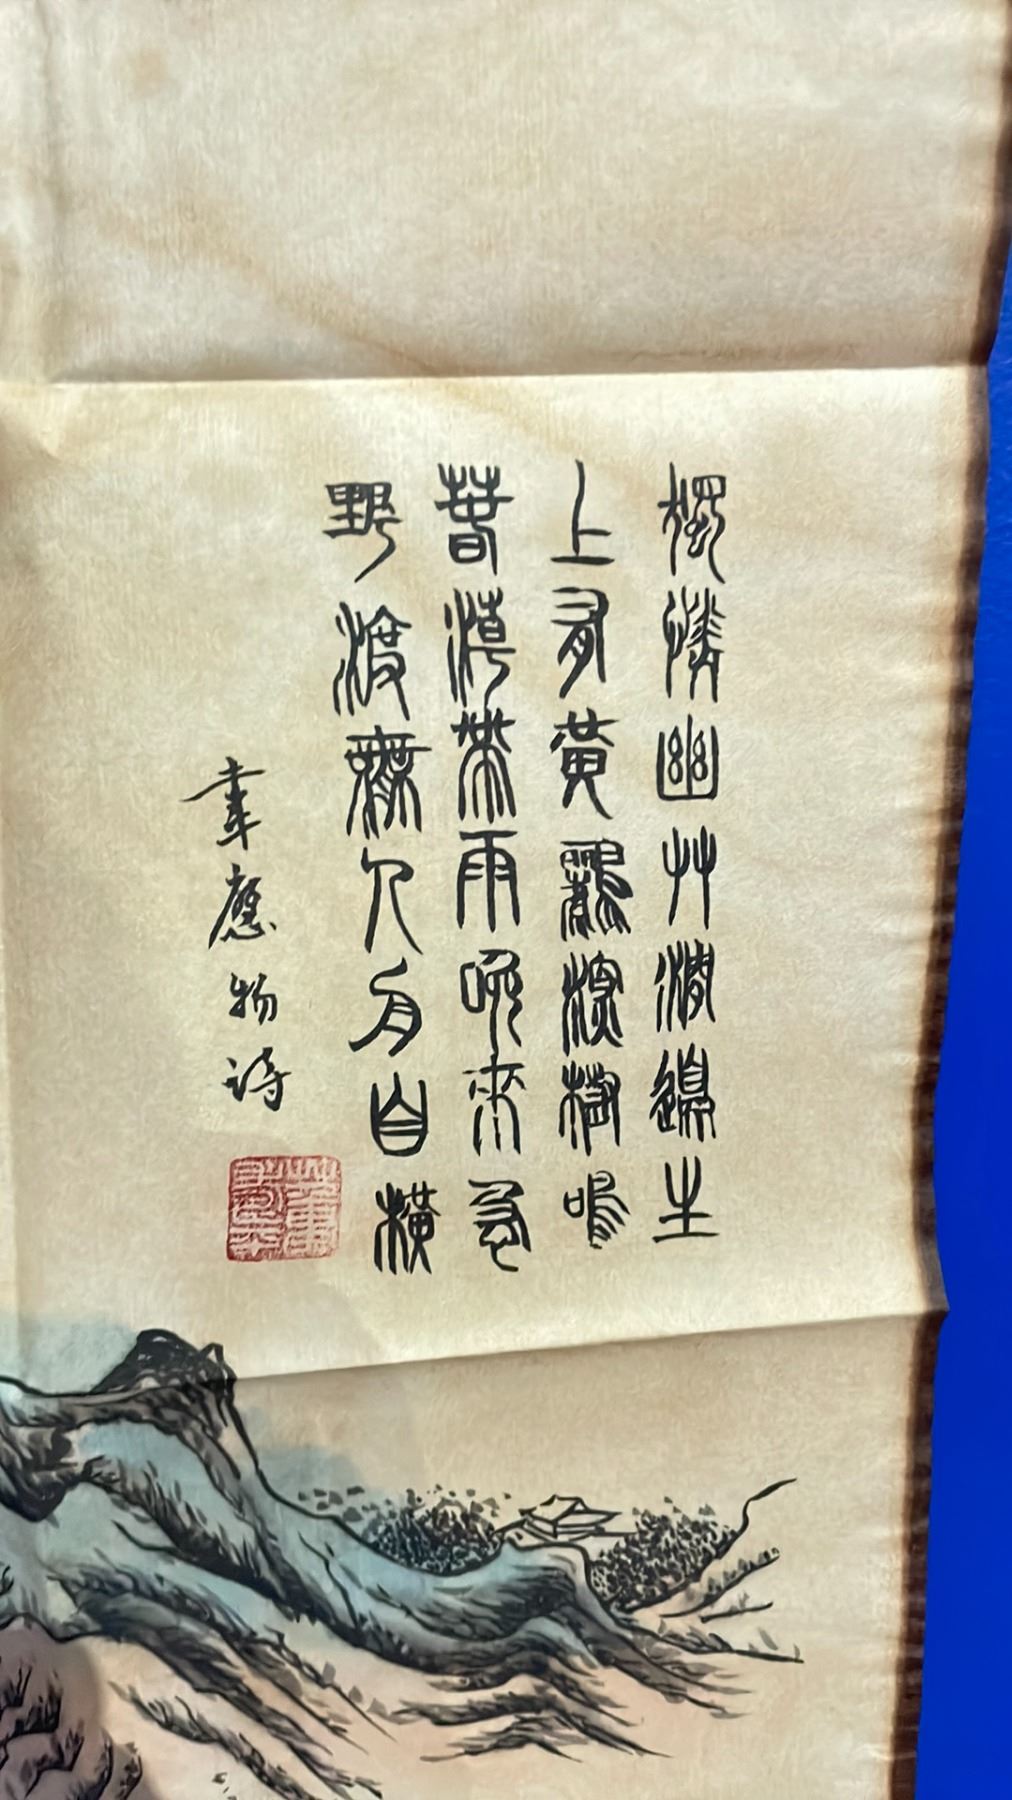 獨憐幽艸澗邊生
上有黃鸝深樹鳴
春潮帶雨晚來急
野渡無人舟自橫
韋應物詩